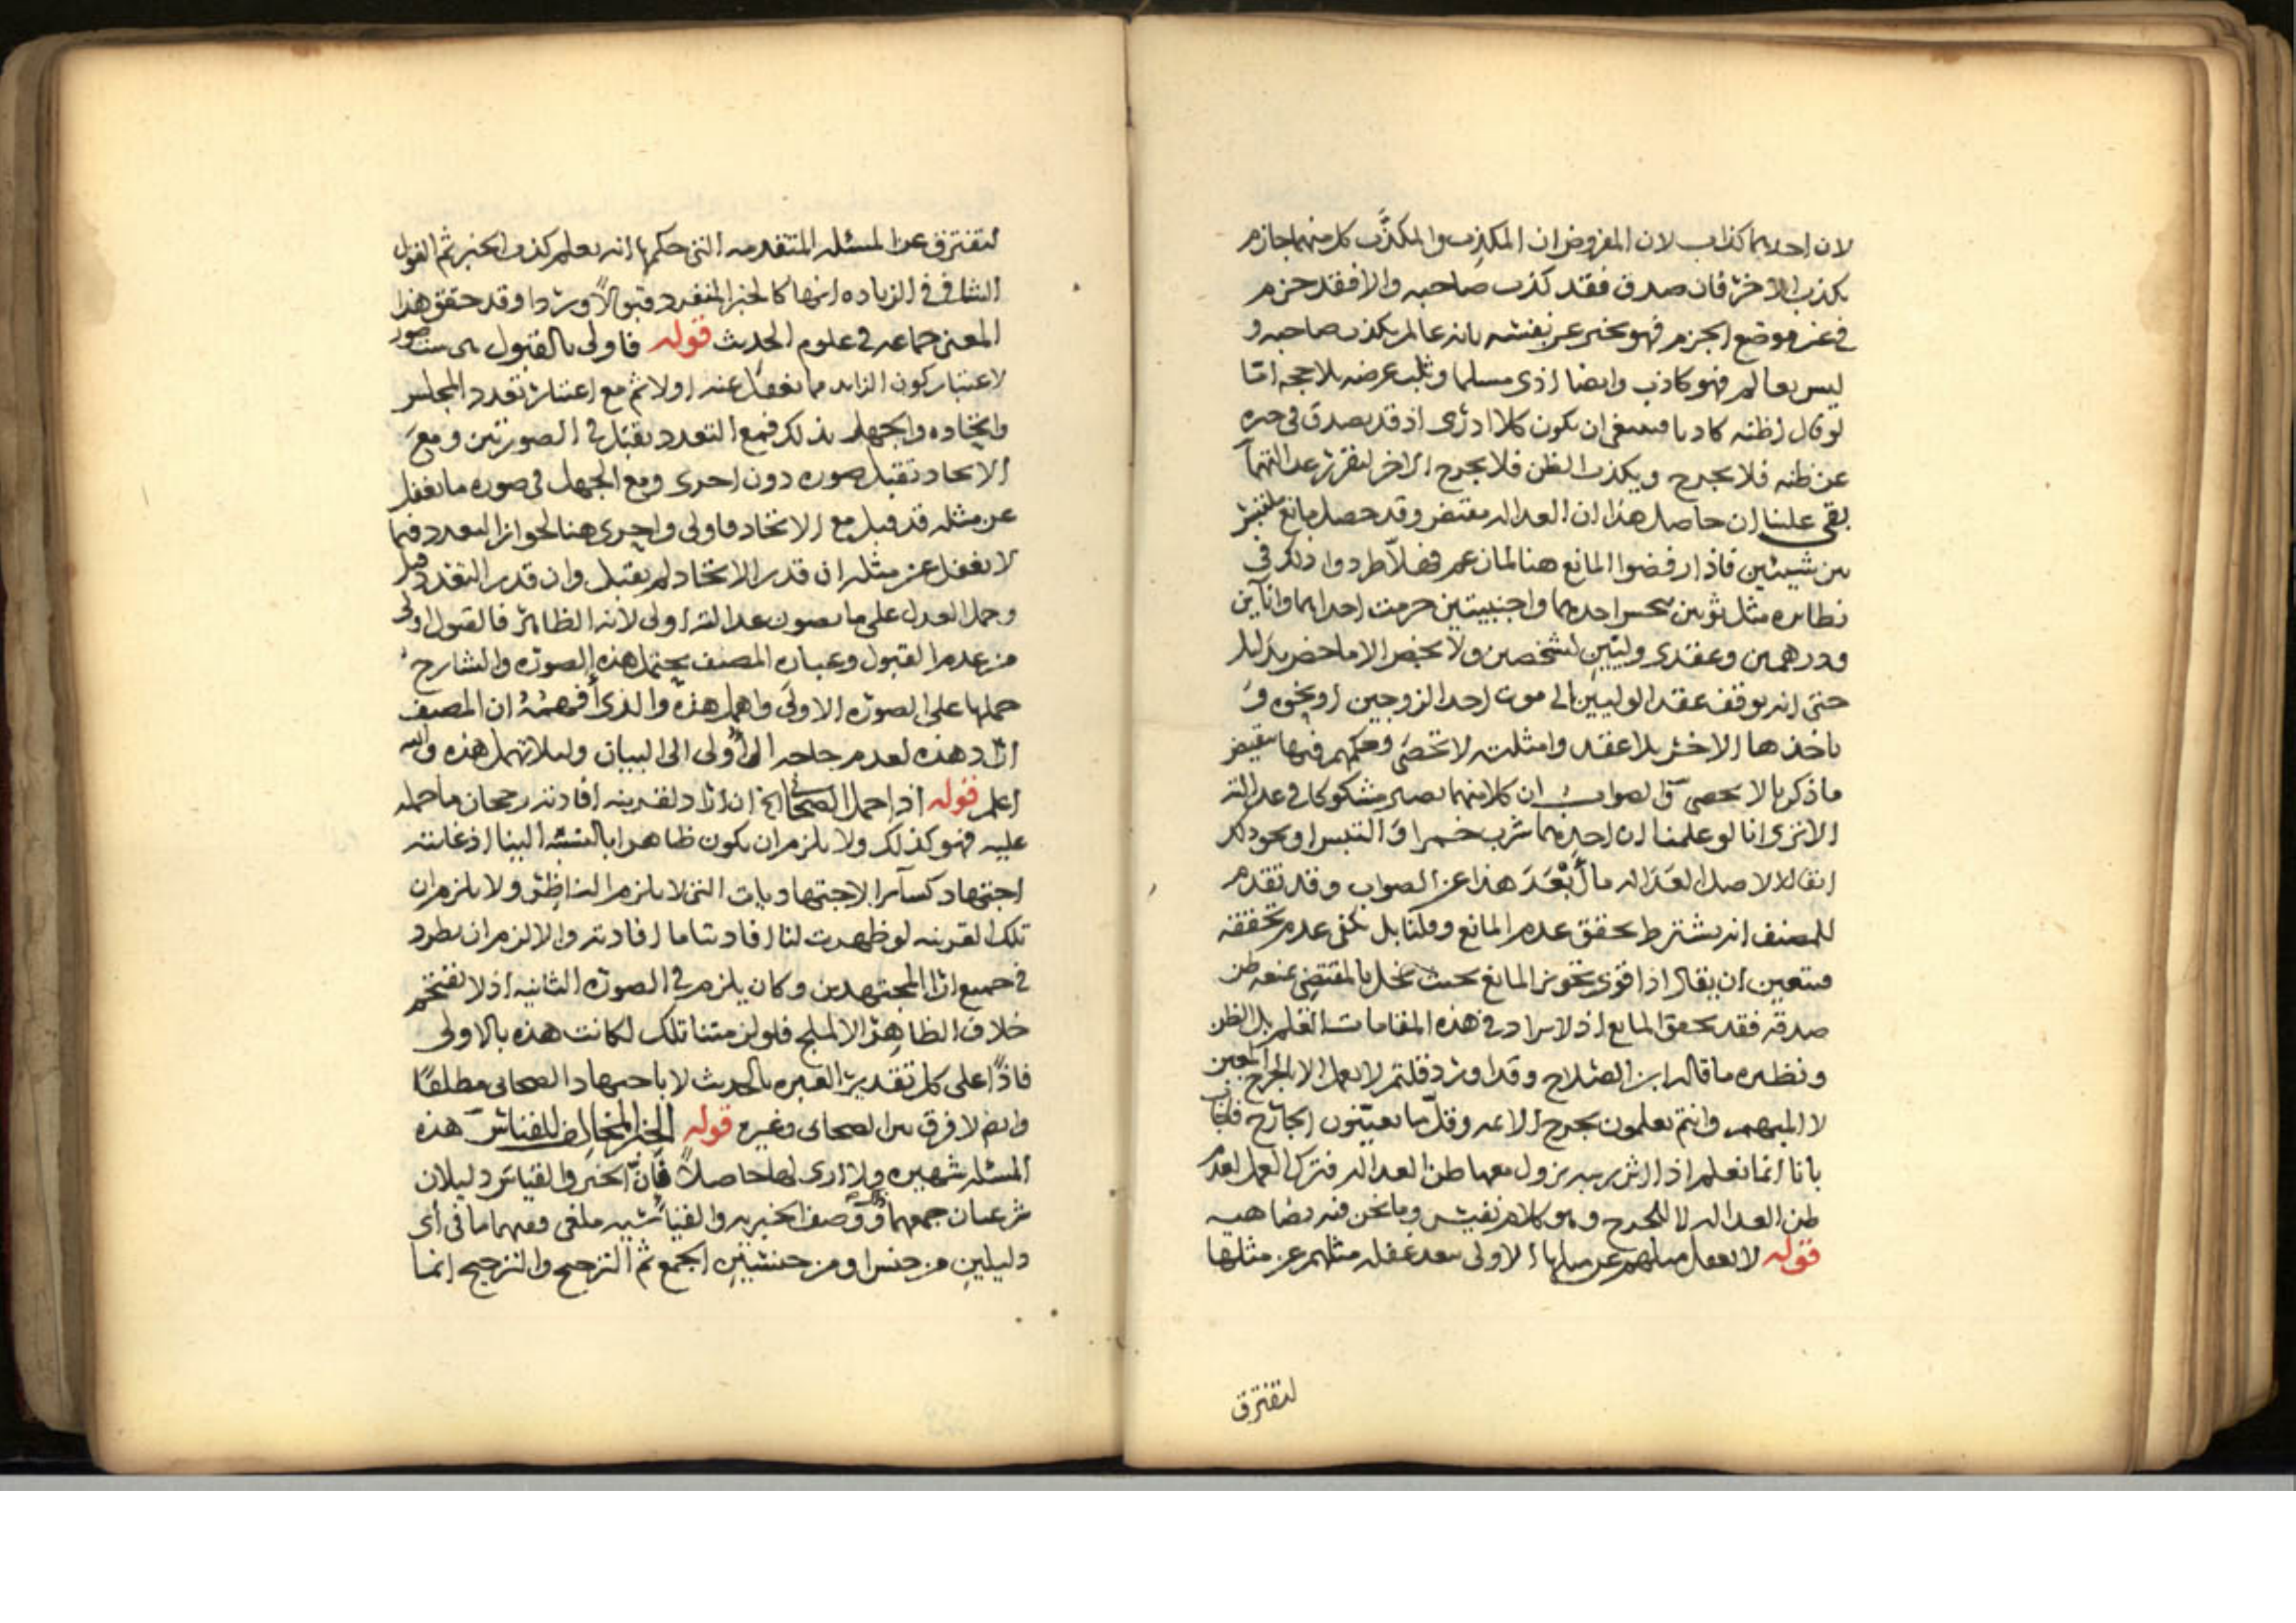 لان احدهما كذاب لان المفروض ان المكذِب والمكذَّب كل منهما جازم
بكذب الاخر فان صدق فقد كذب صاحبه والا فقد جزم
في غير موضع الجزم فهو مخبر عن نفسه بانه عالم بكذب صاحبه و
ليس بعالم فهو كاذب وايضا اذى مسلما وثلب عرضه بلا حجه امّا
لو قال اظنه كاذبا فينبغي ان يكون كلا ادرى اذ قد يصدق في خبره
عن ظنه فلا يجرح ويكذب الظن فلا يجرح الاخر لتقرر عدالتهما
بقي علينا ان حاصل هذا ان العداله مقتض وقد حصل مانع ملتبس
بين شيئين فاذا رفضوا المانع هنا لمانعهم فهلّا طردوا ذلك في
نظائره مثل ثوبين نجس احدهما واجنبيتين حرمت احداهما واناين
ودرهمين وعقدى وليّين لشخصين ولا يخص الا ما خص بدليل
حتى انه يوقف عقد الوليين الى موت احد الزوجين او نحوه و
ياخذها الاخر بلا عقد وامثلته لا تحصى وحكمهم فيها نقيض
ما ذكر بالا يحصى والصواب ان كلا منهما يصير مشكوكا في عدالته
الا ترى انا لو علمنا ان احدهما شرب خمرا والتبس او نحو ذلك
ايقال الاصل العداله ما أبْعَدَ هذا عن الصواب وقد تقدم
للمصنف انه يشترط تحقق عدم المانع وقلنا بل يكفي عدم تحققه
فيتعين ان يقال اذا قوى تجويز المانع بحيث يخل بالمقتضي بمنعه ظن
صدقه فقد تحقق المانع اذ لا يراد في هذه المقامات العلم بل الظن
ونظيره ما قاله ابن الصلاح وقد اورد قلتم لا يعمل الا بالجرح المعين
لا المبهم وانتم تعملون بجرح الائمه وقلّ ما يعيّنون الجارح فاجاب
بانا انما نعلم اذا اثر ريبه يزول معها ظن العداله فترك العمل لعدم
ظن العداله لا للجرح وهو كلام نفيس وما نحن فيه يضاهيه
قوله لا يغفل مثلهم عن مثلها الاولى بعد غفله مثلهم عن مثلها
لتفترق
لتفترق عن المسئله المتقدمه التي حكمها انه يعلم كذب الخبر ثم القول
الشافي في الزياده انها كالخبر المنفرد قبولاً وردا وقد حقق هذا
المعنى جماعه في علوم الحديث قوله فاولى بالقبول
لاعتبار كون الزايد مما يغفل عنه او لا ثم مع اعتبار تعدد المجلس
واتحاده والجهل بذلك فمع التعدد يقبل في الصورتين ومع
الاتحاد تقبل صوره دون اخرى ومع الجهل في صوره ما يغفل
عن مثله قد قبل مع الاتحاد فاولى واحرى هنا لجواز التعدد فيما
لا يغفل عن مثله ان قدر الاتحاد لم يقبل وان قدر التعدد قبل
وحمل العدل على ما يصون عدالته اولى لانه الظاهر فالقبول اولى
من عدم القبول وعباره المصنف يحتمل هذه الصوره والشارح
حملها على الصوره الاولى واهمل هذه والذى أفهمُهُ ان المصنف
اراد هذه لعدم حاجه الأولى الى البيان ولئلا تهمل هذه والله
اعلم قوله اذا حمل الصحابي الخ ان اراد لقرينه افادته رجحان ما حمله
عليه فهو كذلك ولا يلزم ان يكون ظاهرا بالنسبه الينا اذ غايته
اجتهاد كسائر الاجتهاديات التي لا يلزم الناظر ولا يلزم ان
تلك القرينه لو ظهرت لنا افادتنا ما افادته والا لزم ان يطرد
في جميع ارا المجتهدين وكان يلزم في الصوره الثانيه اذ لا يقتحم
خلاف الظاهر الا لملجٍ فلو لزمتنا تلك لكانت هذه بالاولى
فاذًا على كل تقدير العبره بالحديث لا باجتهاد الصحابي مطلقًا
وايضا لا فرق بين الصحابى وغيره قوله الخبر المخالف للقياس هذه
المسئله شهيره ولا ارى لها حاصلاً فانّ الخبر والقياس دليلان
شرعيان جمعهما ووصف الخبريه والقياسيه ملغى ففيهما ما في أى
دليلين من جنس او من جنسين الجمع ثم الترجيح والترجيح انما